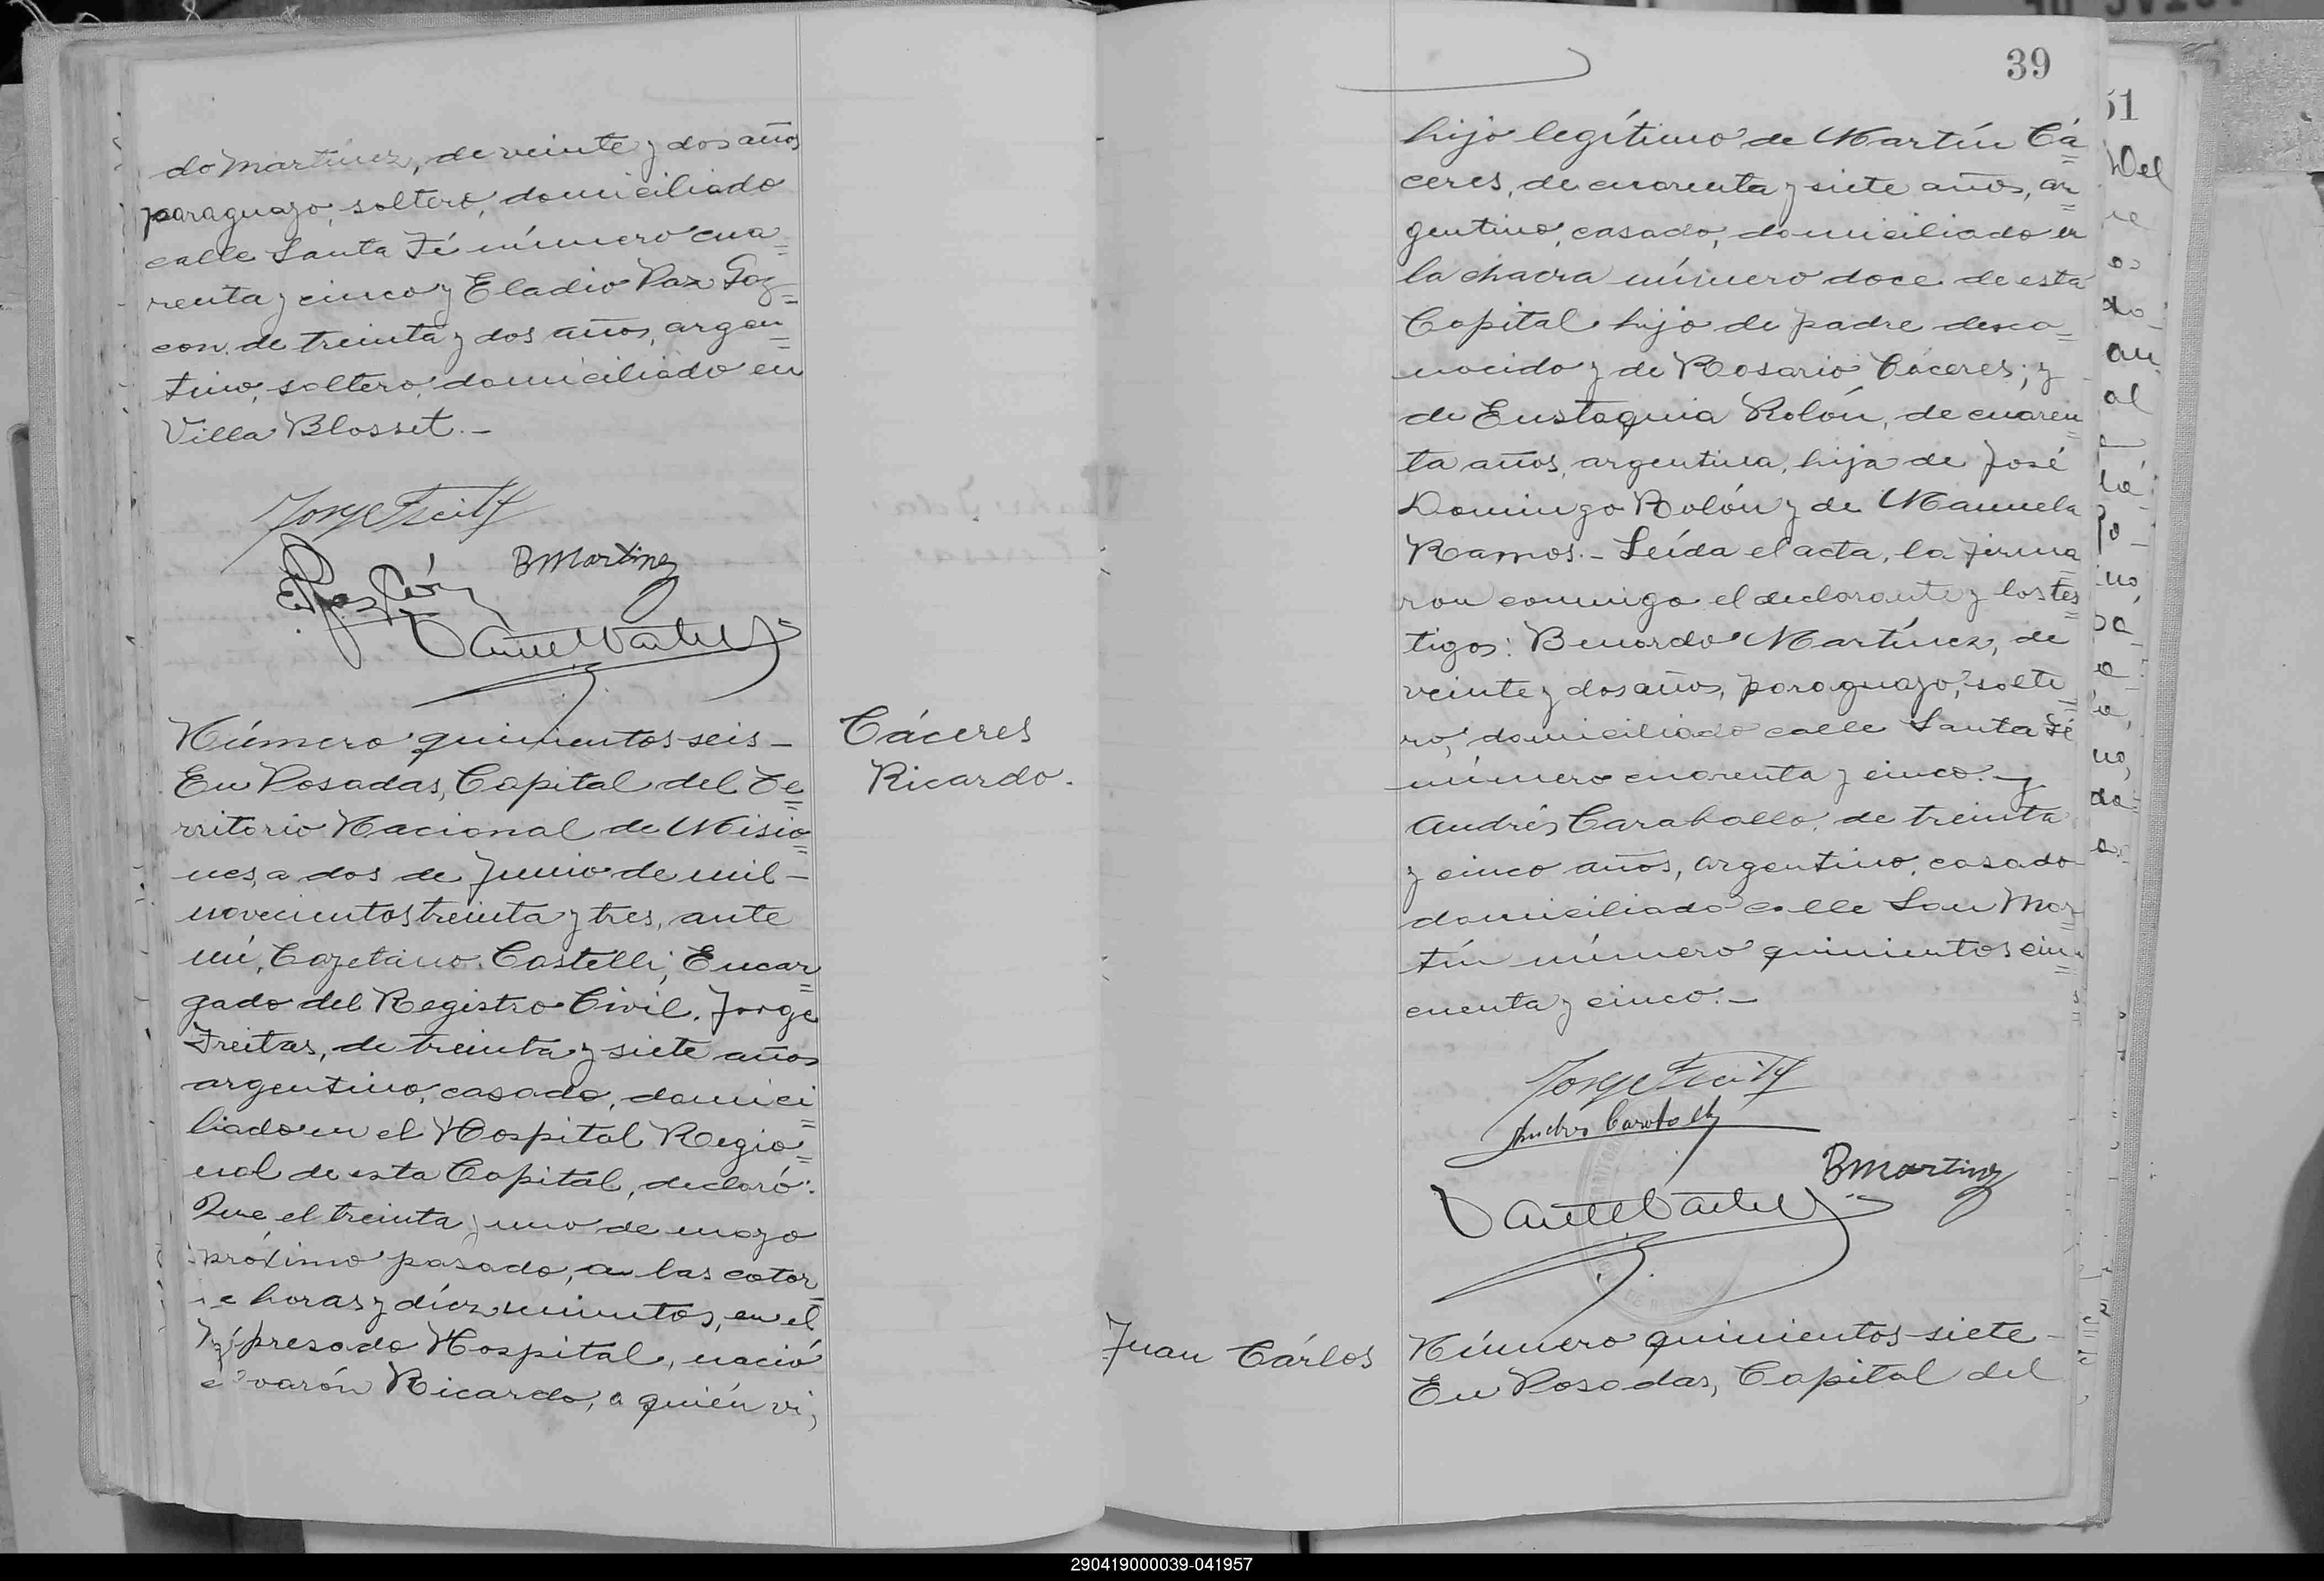 do Martínez, de veinte y dos años
paraguayo, soltero, domiciliado
calle Santa Fé número cua=
renta y cinco y Eladio Paz Goz=
con. de treinta y dos años, argen=
tino, soltero, domiciliado en
Villa Blosset.-
BMartinez
Número quinientos seis-
En Posadas, Capital del Te=
rritorio Nacional de Misio=
nes, a dos de Junio de mil-
novecientos treinta y tres, ante
mí, Cayetano Castelli, Encar=
gado del Registro Civil. Jorge
Freitas, de treinta y siete años
argentino, casado, domici=
liado en el Hospital Regio=
nal de esta Capital, declaró:
Que el treinta y uno de mayo
próximo pasado, a las cator
ce horas y diez minutos, en el
expresado Hospital, nació
el varón Ricardo, a quién vi,
Cáceres
Ricardo.
39
hijo legítimo de Martín Cá=
ceres, de cuarenta y siete años, ar=
gentino, casado, domiciliado en
la chacra número doce de esta
Capital hijo de padre desco=
nocido y de Rosario Cáceres; y
de Eustaquia Rolón, de cuaren=
ta años, argentina, hija de José
Domingo Rolón y de Manuela
Ramos.- Leída el acta, la firma=
ron conmigo el declarante y los tes=
tigos: Benardo Martínez, de
veinte y dos años, paraguayo, solte=
ro, domiciliado calle Santa Fé
número cuarenta y cinco.- y
Andrés Caraballo, de treinta
y cinco años, argentino, casado
domiciliado calle San Mar=
tín número quinientos cin=
cuenta y cinco.-
BMartinez
Juan Cárlos
Número quinientos siete-
En Posadas, Capital del
51
290419000039-041957